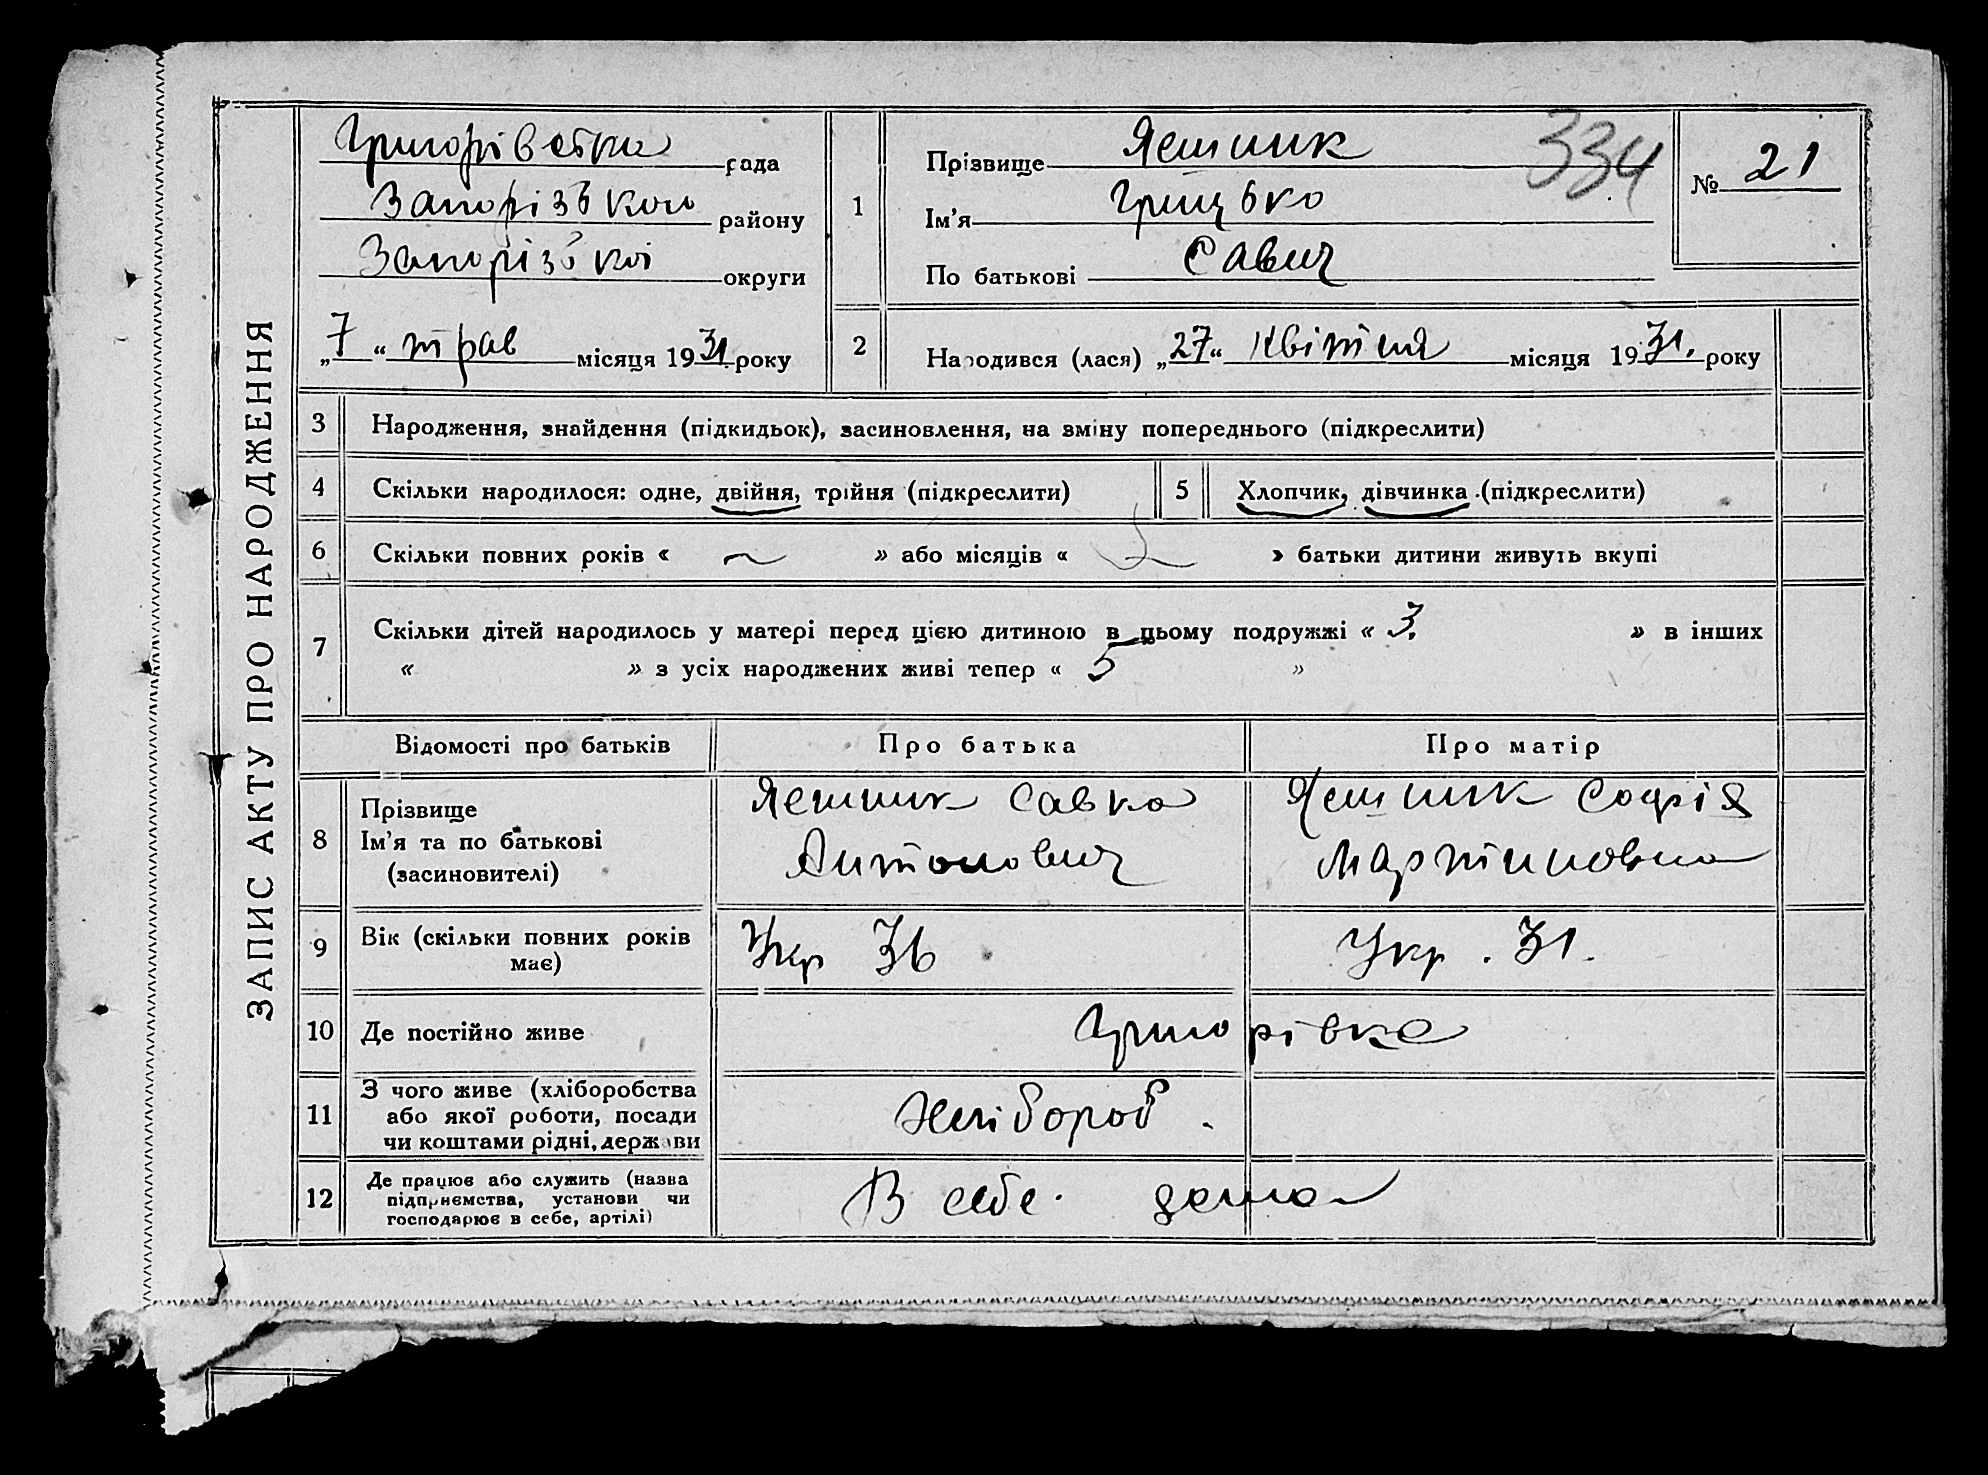 ЗАПИС АКТУ ПРО НАРОДЖЕННЯ
Григорівська рада
Запорізького району
Запорізької округи
„7“ трав місяця 1931 року
1
Прізвище Яешник
Ім'я Грицько
По батькові Савич
334
№ 21
2
Народився (лася) „27“ Квітня місяця 1931. року
3 Народження, знайдення (підкидьок), засиновлення, на зміну попереднього (підкреслити)
4 Скільки народилося: одне, двійня, трійня (підкреслити)
5 Хлопчик, дівчинка (підкреслити)
6 Скільки повних років « ~ » або місяців « » батьки дитини живуть вкупі
7 Скільки дітей народилось у матері перед цією дитиною в цьому подружжі « 3. » в інших
« » з усіх народжених живі тепер « 5 »
Відомості про батьків Про батька Про матір
8 Прізвище
Ім'я та по батькові
(засиновителі)
Яешник Савка
Антонович
Яешник Софія
Мартиновна
9 Вік (скільки повних років
має)
Укр 36
Укр. 31.
10 Де постійно живе Григорівка
11 З чого живе (хліборобства
або якої роботи, посади
чи коштами рідні, держави
Хлібороб.
12 Де працює або служить (назва
підприємства, установи чи
господарює в себе, артілі)
В себе. дома